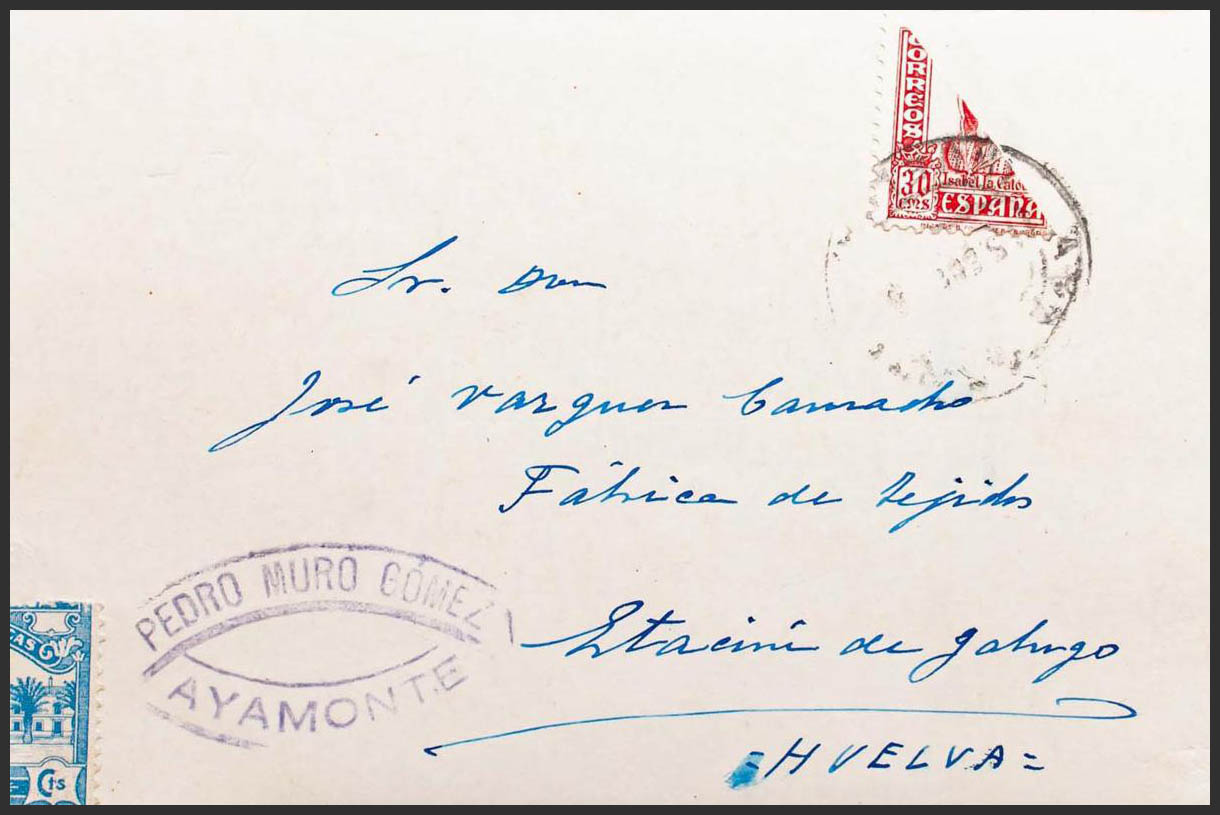 CORREOS
30
CTMS
Isabel la Cató
ESPAÑA
Sr. Don
José Vazquez Camacho
Fábrica de tejidos
PEDRO MURO GÓMEZ
AYAMONTE
Estación de Jabugo
=HUELVA=
AS
Cts